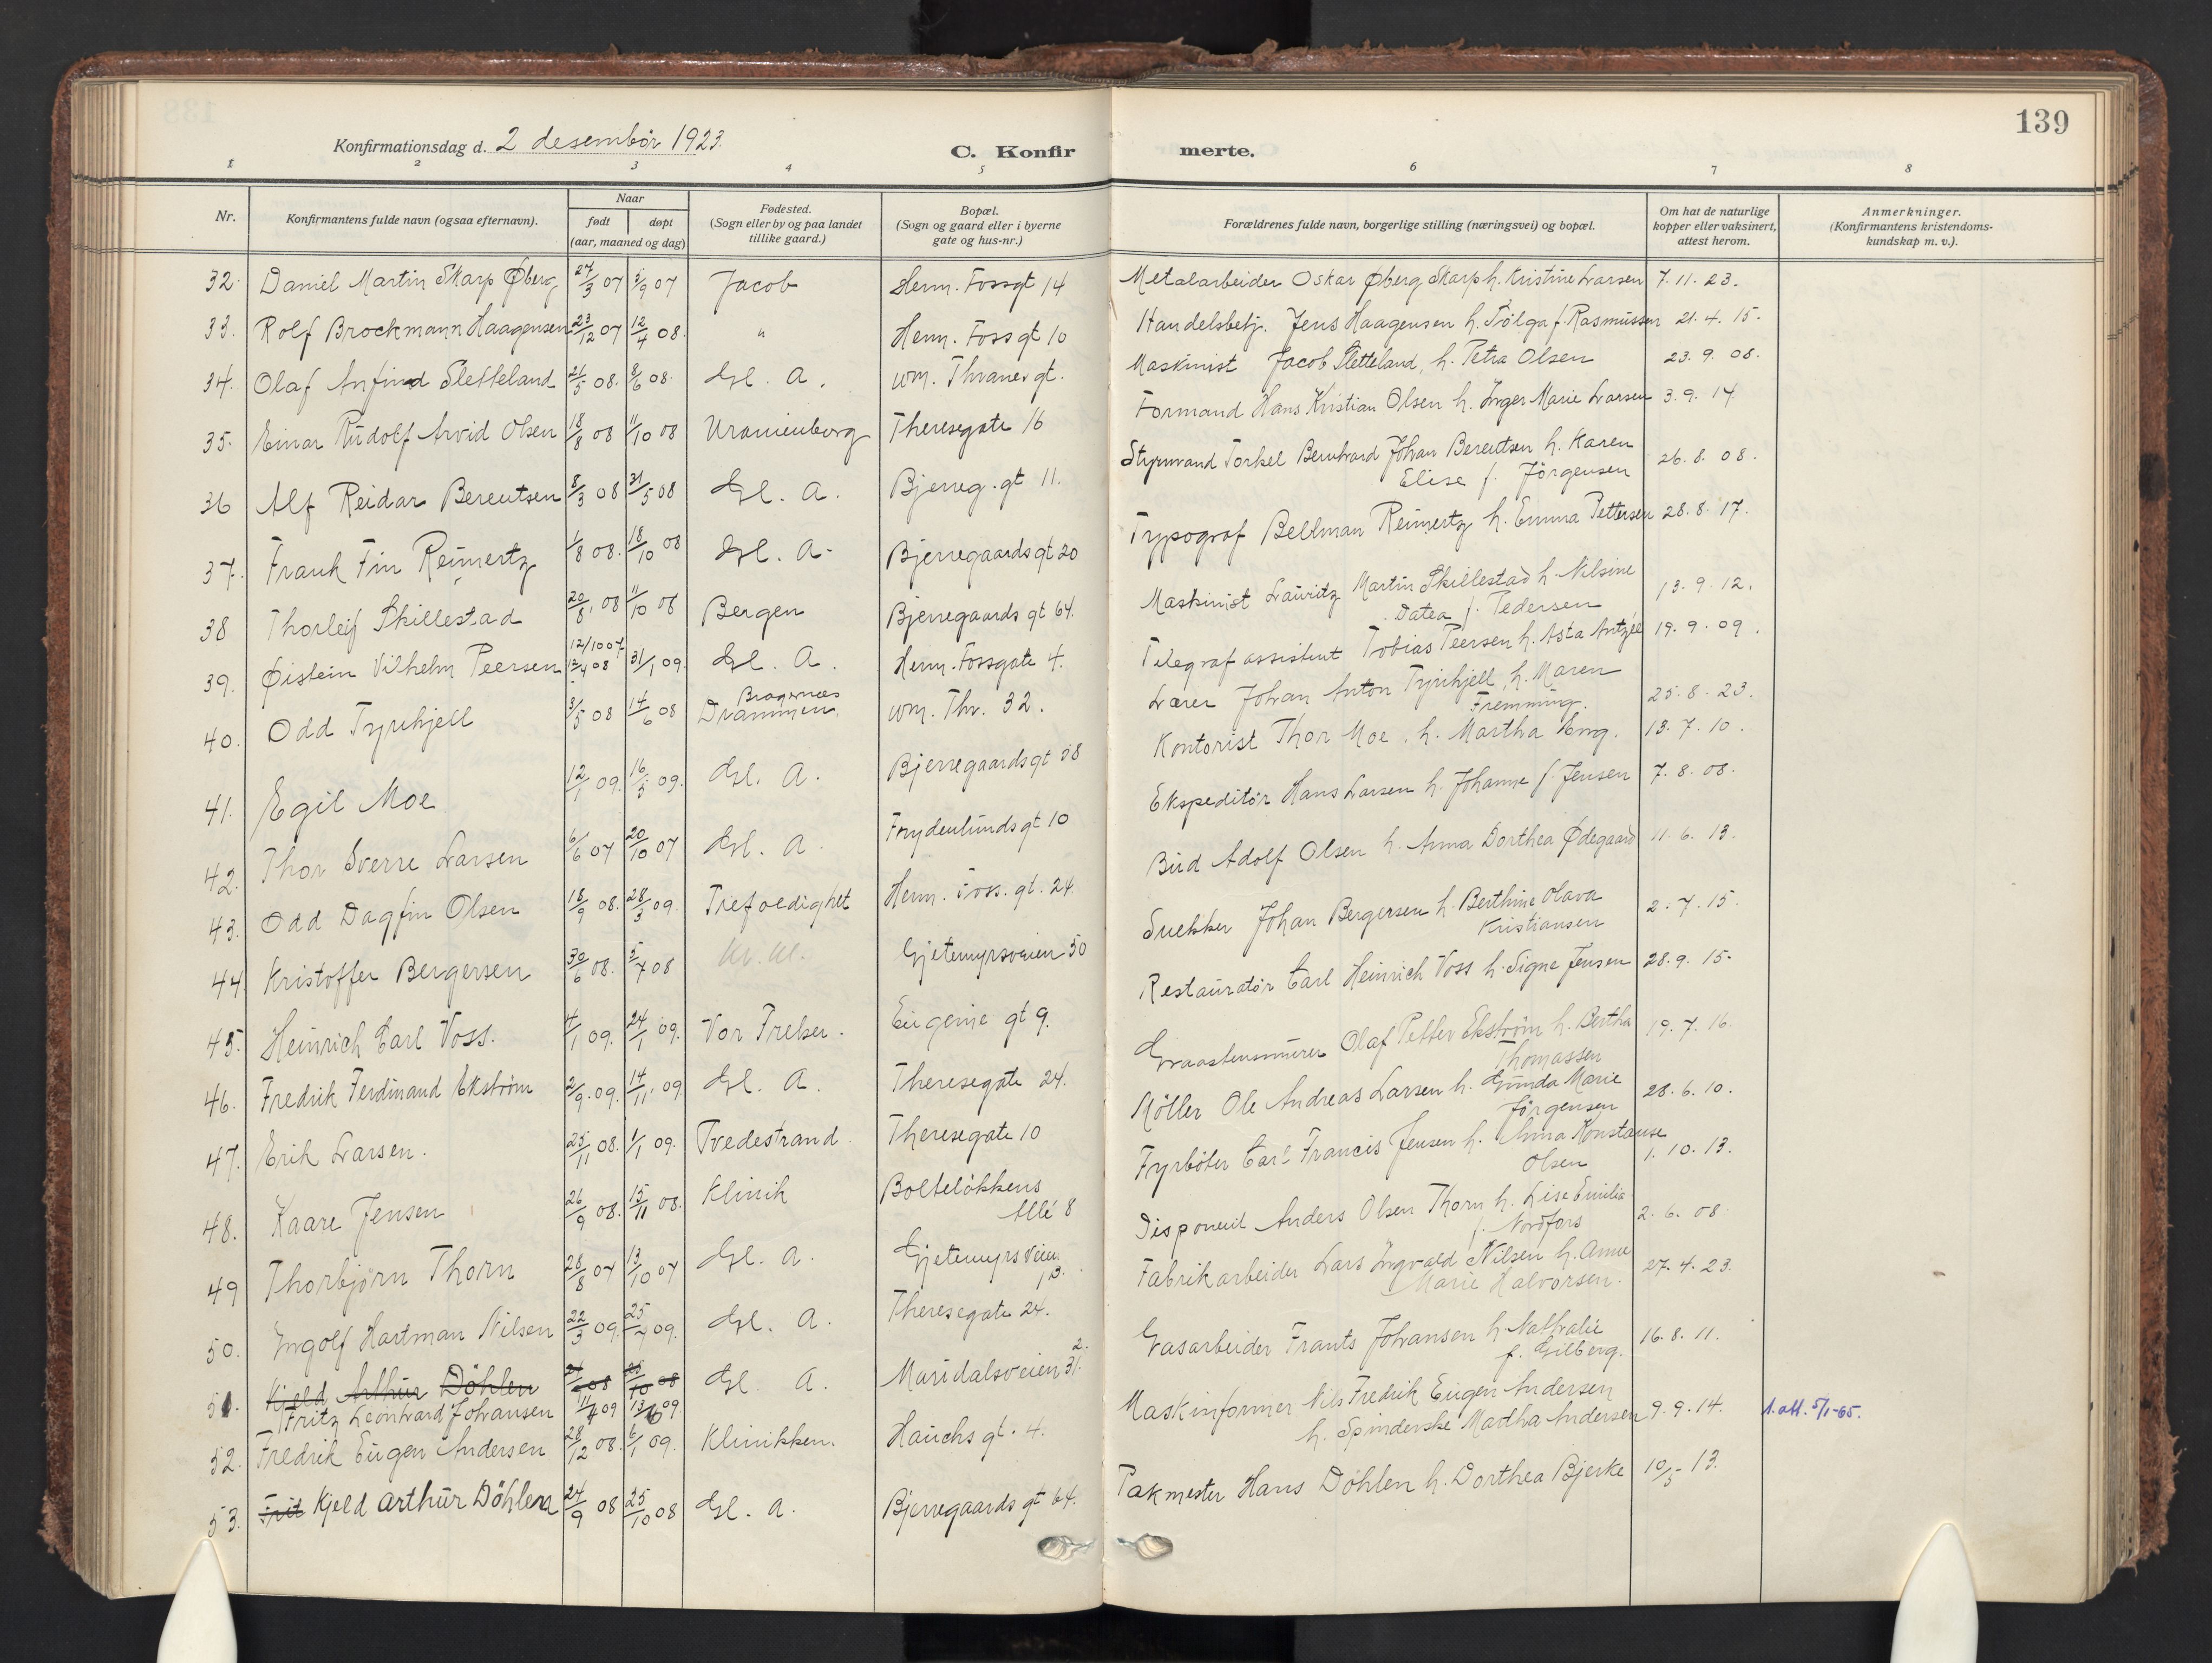 139
Konfirmationsdag d. 2 desembör 1923.
C. Konfir merte.
1 2 3 4 5 6 7 8
Nr.
Konfirmantens fulde navn (ogsaa efternavn).
Naar
født døpt
(aar, maaned og dag)
Fødested.
(Sogn eller by og paa landet
tillike gaard.)
Bopæl.
(Sogn og gaard eller i byerne
gate og hus-nr.)
Forældrenes fulde navn, borgerlige stilling (næringsvei) og bopæl.
Om hat de naturlige
kopper eller vaksinert,
attest herom.
Anmerkninger.
(Konfirmantens kristendoms-
kundskap m. v.).
32. Daniel Martin Skarp Øberg 27/3 07 5/9 07 Jacob Herm. Fossgt 14 Metalarbeider Oskar Øberg Skarp h. Kristine Larsen 7.11.23.
33. Rolf Brockmann Haagensen 23/12 07 12/4 08. " Herm. Foss gt 10 Handelsbetj. Jens Haagensen h. f. Rasmussen 21.4.15.
34. Olaf Anfind Sletteland 21/5 08. 8/6 08. Gl. A. Wm. Thranes gt. Maskinist Jacob Sletteland, h. Petra Olsen 23.9.08.
35. Einar Rudolf Arvid Olsen 18/8 08 11/10 08 Uranienborg Theresegate 16 Formand Hans Kristian Olsen h. Inger Marie Larsen 3.9.14
36 Alf Reidar Berentsen 8/3 08 31/5 08 Gl. A. Bjerreg. gt 11. Styrmand Torkel Bernhard Johan Berentsen h. Karen
Elise f. Jörgensen 26.8.08.
37. Frank Fin Reimertz 1/8 08. 18/10 08 Gl. A. Bjerregaards gt 20 Typograf Bellman Reimertz h. Emma Pettersen 28.8.17.
38 Thorleif Skillestad 20/8 08 11/10 08 Bergen Bjerregaards gt 64. Maskinist Lauritz Martin Skillestad h. Nilsine
Datea f. Pedersen 13.9.12.
12/10 07
39. Øistein Vilhelm Peersen 12/4 08 31/1 09. Gl. A. Herm. Fossgate 4. Telegrafassistent Tobias Peersen h. Asta 19.9.09.
40. Odd Tyrihjell 3/5 08 14/6 08 Bragernes
Drammen. Wm. Thr. 32. Lærer Johan Anton Tyrihjell, h. Maren
Fremming. 25.8.23.
41. Egil Moe 12/1 09. 16/5 09. Gl. A. Bjerregaardsgt 58 Kontorist Thor Moe, h. Martha Eng. 13.7.10.
42. Thor Sverre Larsen 6/6 07 20/10 07 Gl. A. Frydenlundsgt 10 Ekspeditör Hans Larsen h. Johanne f. Jensen 7.8.08.
43. Odd Dagfin Olsen 18/9 08. 28/3 09. Trefoldighet Herm. Foss. gt. 24. Bud Adolf Olsen h. Anna Dorthea Ødegaard 11.6.13.
44. Kristoffer Bergersen 30/6 08. 5/7 08 Kv. Kl. Gjetemyrsveien 50 Snekker Johan Bergersen h. Berthine Olava
Kristiansen 2.7.15.
45. Heinrich Carl Voss. 4/1 09. 24/1 09. Vor Frelser. Eugenie gt 9. Restauratör Carl Heinrich Voss h. Signe Jensen 28.9.15.
46. Fredrik Ferdinand Ekström 2/9. 09. 14/11. 09 Gl. A. Theresegate 24. Graastensmurer Olaf Petter Ekström h. Bertha
Thomassen 19.7.16.
47. Erik Larsen. 25/11 08. 1/1 09. Tvedestrand Theresegate 10 Möller Ole Andreas Larsen h. Gunda Marie
Jörgensen 28.6.10.
48. Kaare Jensen 26/9 08. 15/11 08. Klinik Bolteløkkens
Allé 8 Fyrböter Carl Francis Jensen h. Anna Konstanse
Olsen 1.10.13.
49 Thorbjörn Thorn 28/8 07 13/10 07 Gl. A. Gjetemyrsveien
13. Disponent Anders Olsen Thorn h. Lise Emilie
f. Nordfors 2.6.08
50. Ingolf Hartman Nilsen 22/3 09. 25/7 09. Gl. A. Theresegate 24. Fabrikarbeider Lars Ingvald Nilsen h. Anne
Marie Halvorsen. 27.4.23.
51. Kjeld Arthur Döhlen 24/9 08 25/10 08 Gl. A. Maridalsveien 31. 2. Gasarbeider Frants Johansen h. Nathalie
f. Gilberg. 16.8.11.
Fritz Leonhard Johansen 11/4 09 13/6 09
52. Fredrik Eugen Andersen 28/12 08. 6/1 09. Klinikken. Hauchs gt. 4. Maskinformer Nils Fredrik Eugen Andersen
h. Spinderske Martha Andersen 9.9.14. 1. att. 5/1-65.
53. Frit Kjeld Arthur Döhlen 24/9 08 25/10 08 Gl. A. Bjerregaards gt 64. Takmester Hans Döhlen h. Dorthea Bjerke 10/5-13.